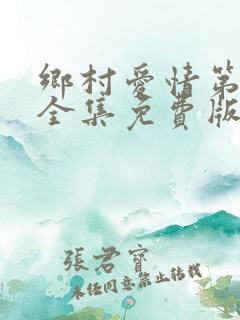 鄉村愛情第
全集免費版
張君寶
未任同意禁止转载